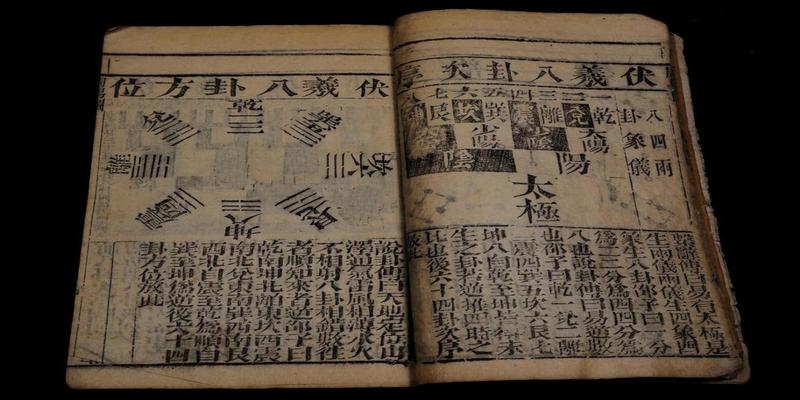 伏羲八卦次序
兩儀
四象
八卦
一二三四五六七
乾兌離巽坎艮
太陽
少陰
少陽
陽
陰
太極
繫辭傳曰易有太極是
生兩儀兩儀生四象四
象生八卦邵子曰一分
為二二分為四四分為
八也說卦傳曰易逆數
也邵子曰乾一兌二離
三震四巽五坎六艮七
坤八自乾至坤皆得未
生之卦若逆推四時之
比也後六十四卦次序
放此
伏羲八卦方位
乾
兌
離
震
巽
坎
艮
坤
說卦傳曰天地定位山
澤通氣雷風相薄水火
不相射八卦相錯數往
者順知來者逆邵子曰
乾南坤北離東坎西震
東北兌東南巽西南艮
西北自震至乾為順自
巽至坤為逆後六十四
卦方位放此